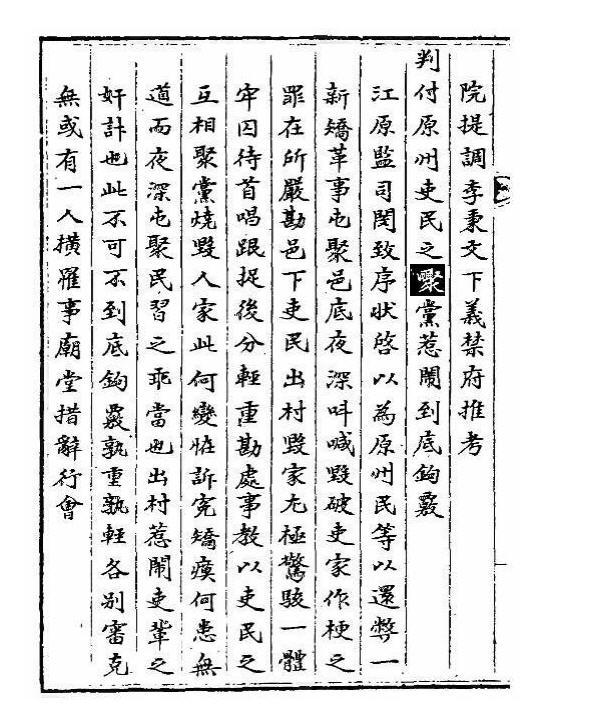 院提調李秉文下義禁府推考
判付原州吏民之聚黨惹鬧到底鉤覈
江原監司閔致序狀啓以為原州民等以還弊一
新矯革事屯聚邑底夜深叫喊毀破吏家作梗之
罪在所嚴勘邑下吏民出村毀家尤極驚駭一體
牢囚待首唱跟捉後分輕重勘處事教以吏民之
互相聚黨燒毀人家此何變恠訴寃矯瘼何患無
道而夜深屯聚民習之乖當也出村惹鬧吏輩之
奸計也此不可不到底鉤覈孰重孰輕各別審克
無或有一人橫罹事廟堂措辭行會